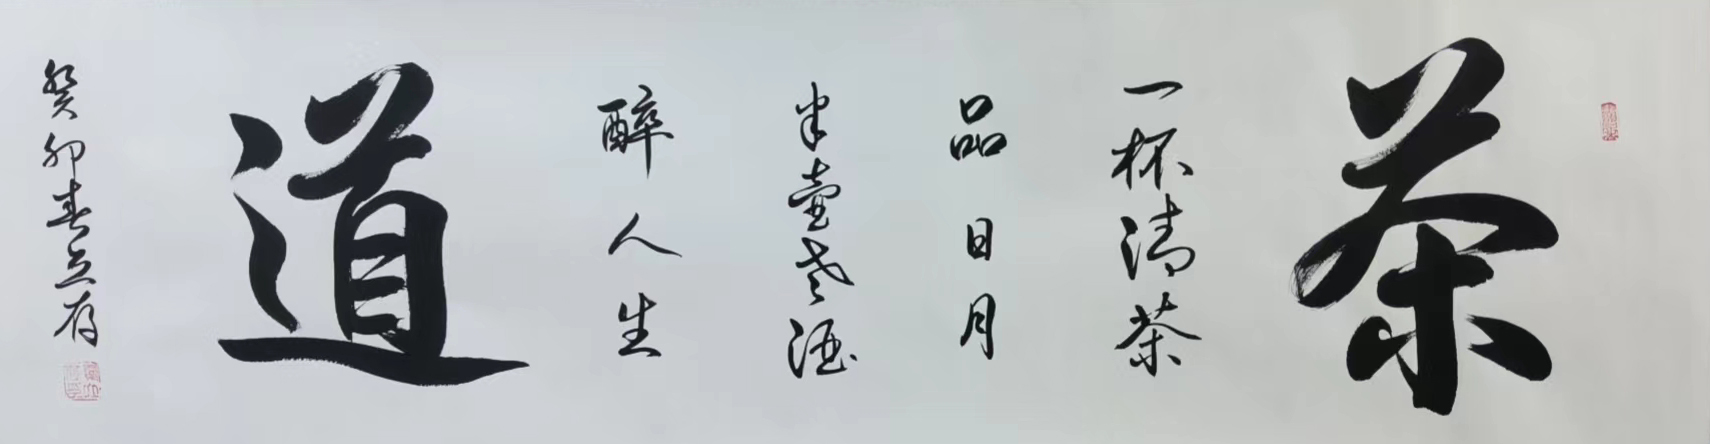 茶
一杯清茶
品日月
半壶老酒
醉人生
道
癸卯春立存